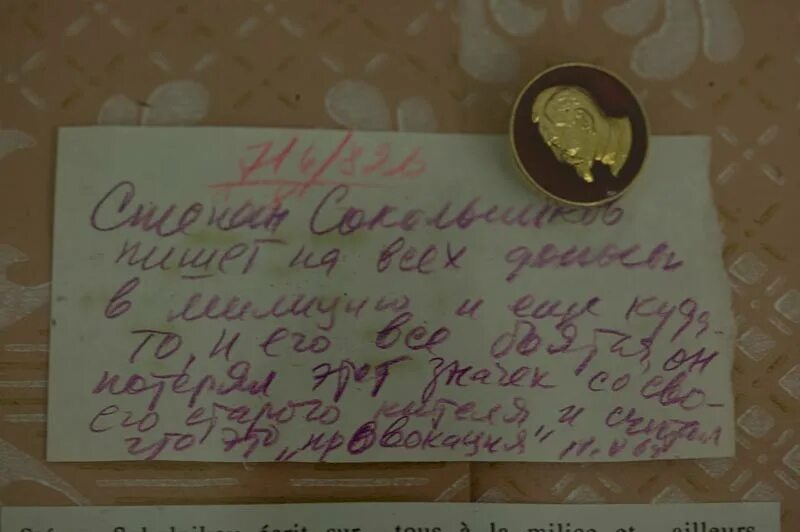 716/826
Степан Сокольников
пишет на всех доносы
в милицию и еще куда-
то, и его все боятся, он
потерял этот значек со сво-
его старого кителя и считал
что это „провокация"
écrit sur tous à la milice et ailleurs